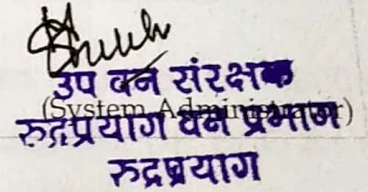 उप वन संरक्षक
(System Administrator)
रुद्रप्रयाग वन प्रभाग
रुद्रप्रयाग